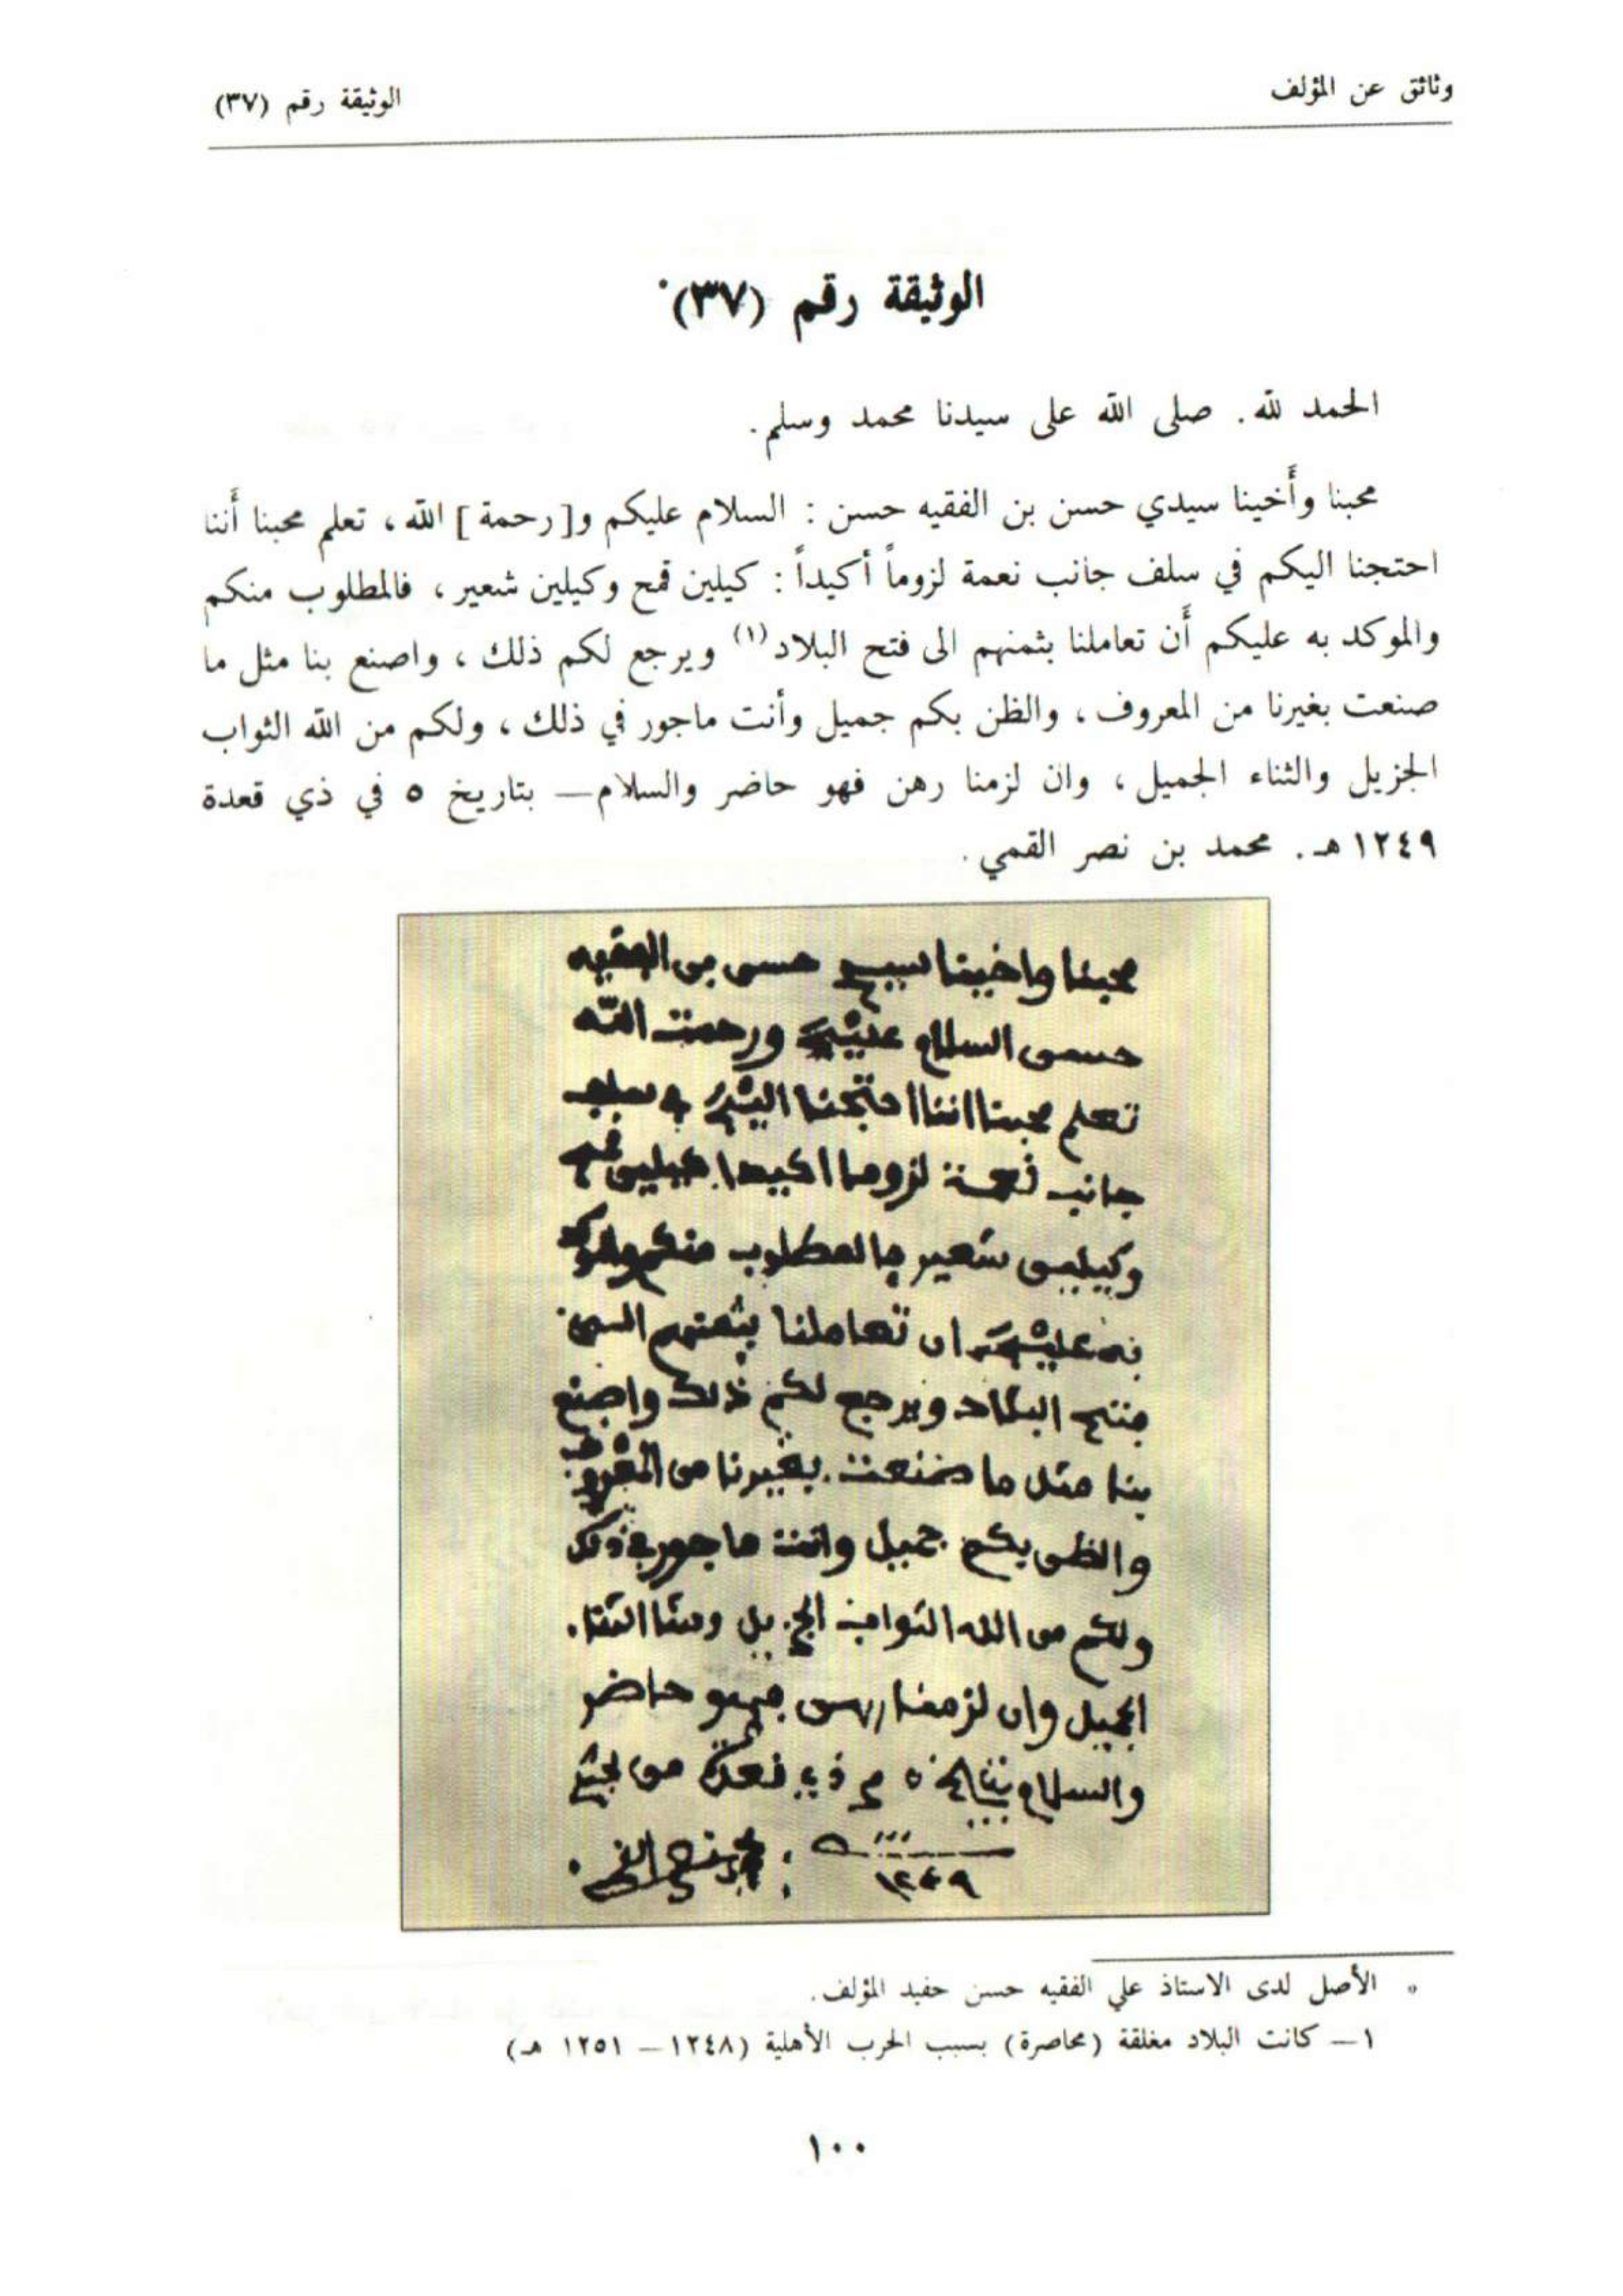 وثائق عن المؤلف
الوثيقة رقم (٣٧)
الوثيقة رقم (٣٧)*
الحمد لله. صلى الله على سيدنا محمد وسلم.
محبنا وأَخينا سيدي حسن بن الفقيه حسن : السلام عليكم و[رحمة] الله ، تعلم محبنا أَننا
احتجنا اليكم في سلف جانب نعمة لزوماً أكيداً : كيلين قمح وكيلين شعير ، فالمطلوب منكم
والموكد به عليكم أَن تعاملنا بثمنهم الى فتح البلاد (١) ويرجع لكم ذلك ، واصنع بنا مثل ما
صنعت بغيرنا من المعروف ، والظن بكم جميل وأنت ماجور في ذلك ، ولكم من الله الثواب
الجزيل والثناء الجميل ، وان لزمنا رهن فهو حاضر والسلام— بتاريخ ٥ في ذي قعدة
١٢٤٩ هـ. محمد بن نصر القمي.
محبنا واخينا سيدي حسن بن الفقيه
حسن السلام عليكم ورحمت الله
تعلم محبنا اننا احتجنا اليكم في سلف
جانب نعمة لزوما اكيدا كيلين قمح
وكيلين شعير فالمطلوب منكم والموكد
به عليكم ان تعاملنا بثمنهم الى
فتح البلاد ويرجع لكم ذلك واصنع
بنا مثل ما صنعت بغيرنا من المعروف
والظن بكم جميل وانت ماجور في ذلك
ولكم من الله الثواب الجزيل الثنا
الجميل وان لزمنا رهن فهو حاضر
والسلام بتاريخ ٥ في ذي قعدة من
١٢٤٩
* الأصل لدى الاستاذ علي الفقيه حسن حفيد المؤلف.
١— كانت البلاد مغلقة (محاصرة) بسبب الحرب الأهلية (١٢٤٨ — ١٢٥١ هـ)
١٠٠